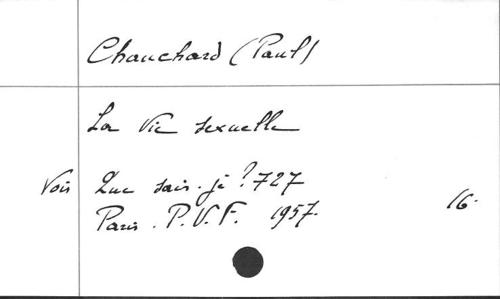 Chauchard (Paul)
La Vie sexuelle
Voir Que sais-je? 727
Paris. P.U.F. 1957. 16.